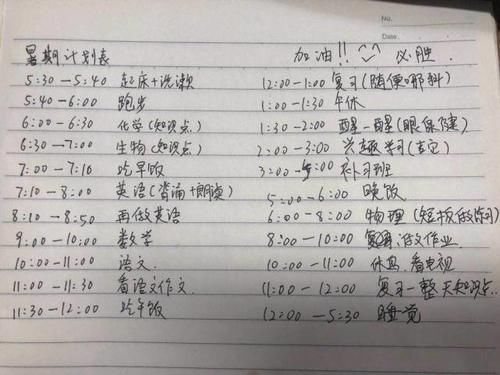 No.
Date
暑期计划表
5:30 — 5:40 起床+洗漱
5:40 — 6:00 跑步
6:00 — 6:30 化学(知识点)
6:30 — 7:00 生物(知识点)
7:00 — 7:10 吃早饭
7:10 — 8:00 英语(背诵+朗读)
8:10 — 8:50 再做英语
9:00 — 10:00 数学
10:00 — 11:00 语文
11:00 — 11:30 看语文作文
11:30 — 12:00 吃午饭
加油!! 必胜
12:00 — 1:00 复习(随便哪科)
1:00 — 1:30 午休
1:30 — 2:00 醒一醒(眼保健)
2:00 — 3:00 兴趣学习(吉它)
3:00 — 5:00 补习班
5:00 — 6:00 晚饭
6:00 — 8:00 物理(短板做练习)
8:00 — 10:00 语文作业
10:00 — 11:00 休息.看电视
11:00 — 12:00 复习一整天知识点..
12:00 — 5:30 睡觉